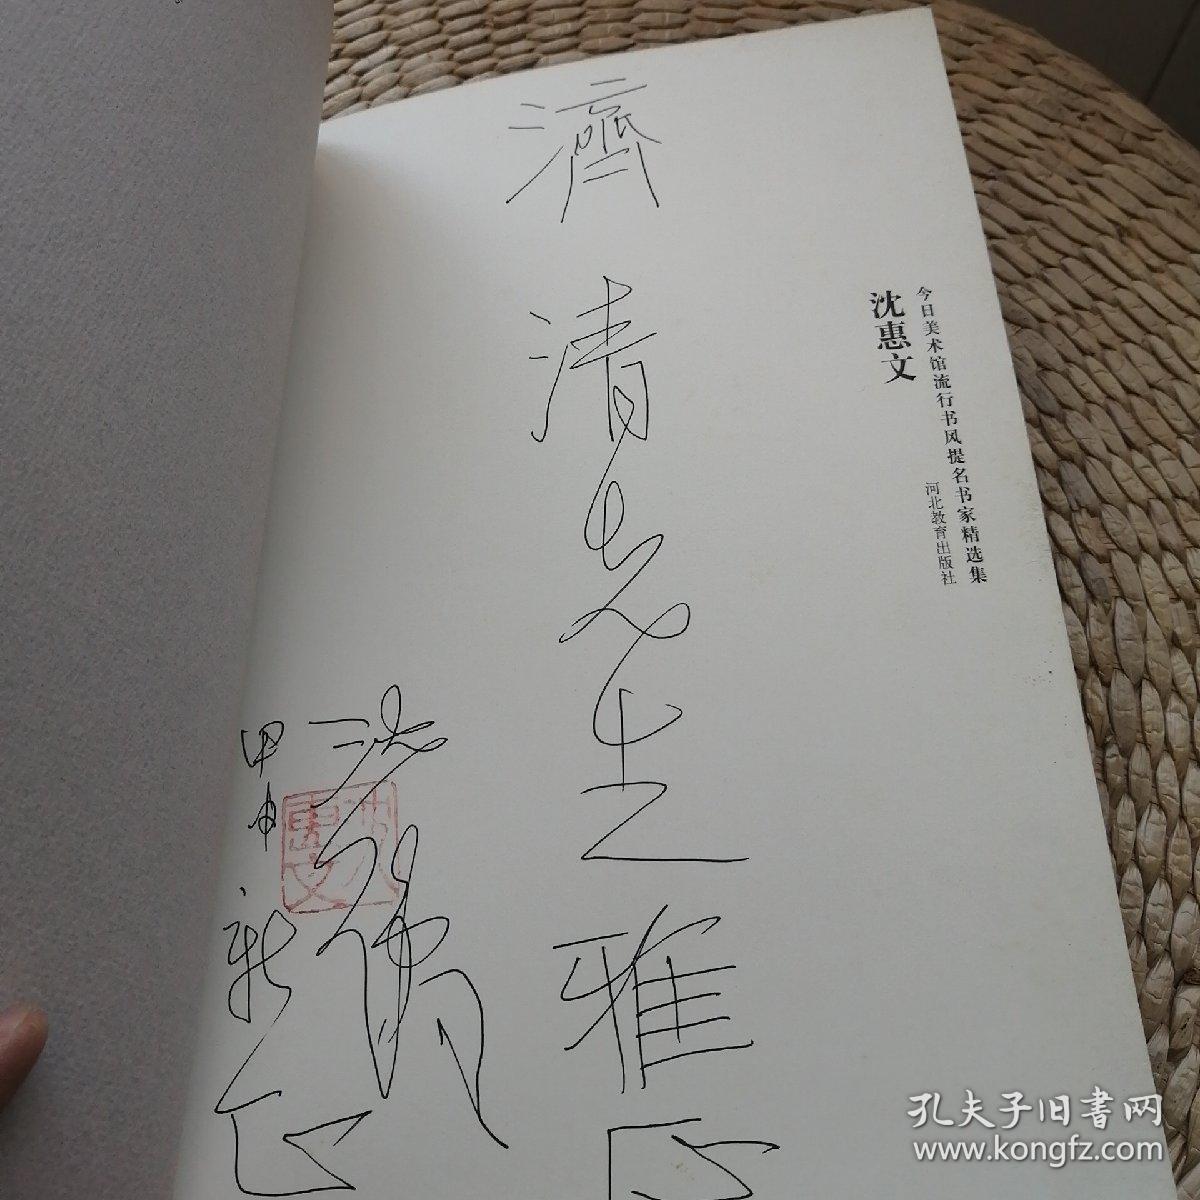 今日美术馆流行书风提名书家精选集
沈惠文
河北教育出版社
濟清先生之雅正
甲申新正
沈惠文
孔夫子旧书网
www.kongfz.com